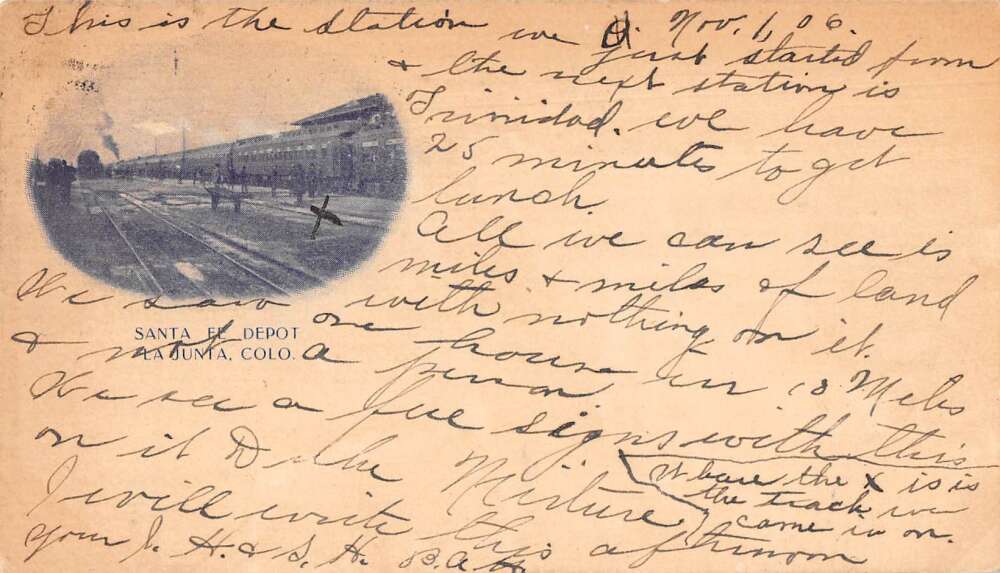 Nov. 1, 06.
This is the station we just started from
& the next station is
Trinidad. we have
25 minutes to get
lunch.
All we can see is
miles & miles of land
with nothing on it.
We saw one house in 18 Miles
& not a person
We see a few signs with this
on it Duke Mixture
I will write this afternoon
your J. H. & S. H.
SANTA FE DEPOT
LA JUNTA, COLO.
Whare the x is is
the track we
came in on.